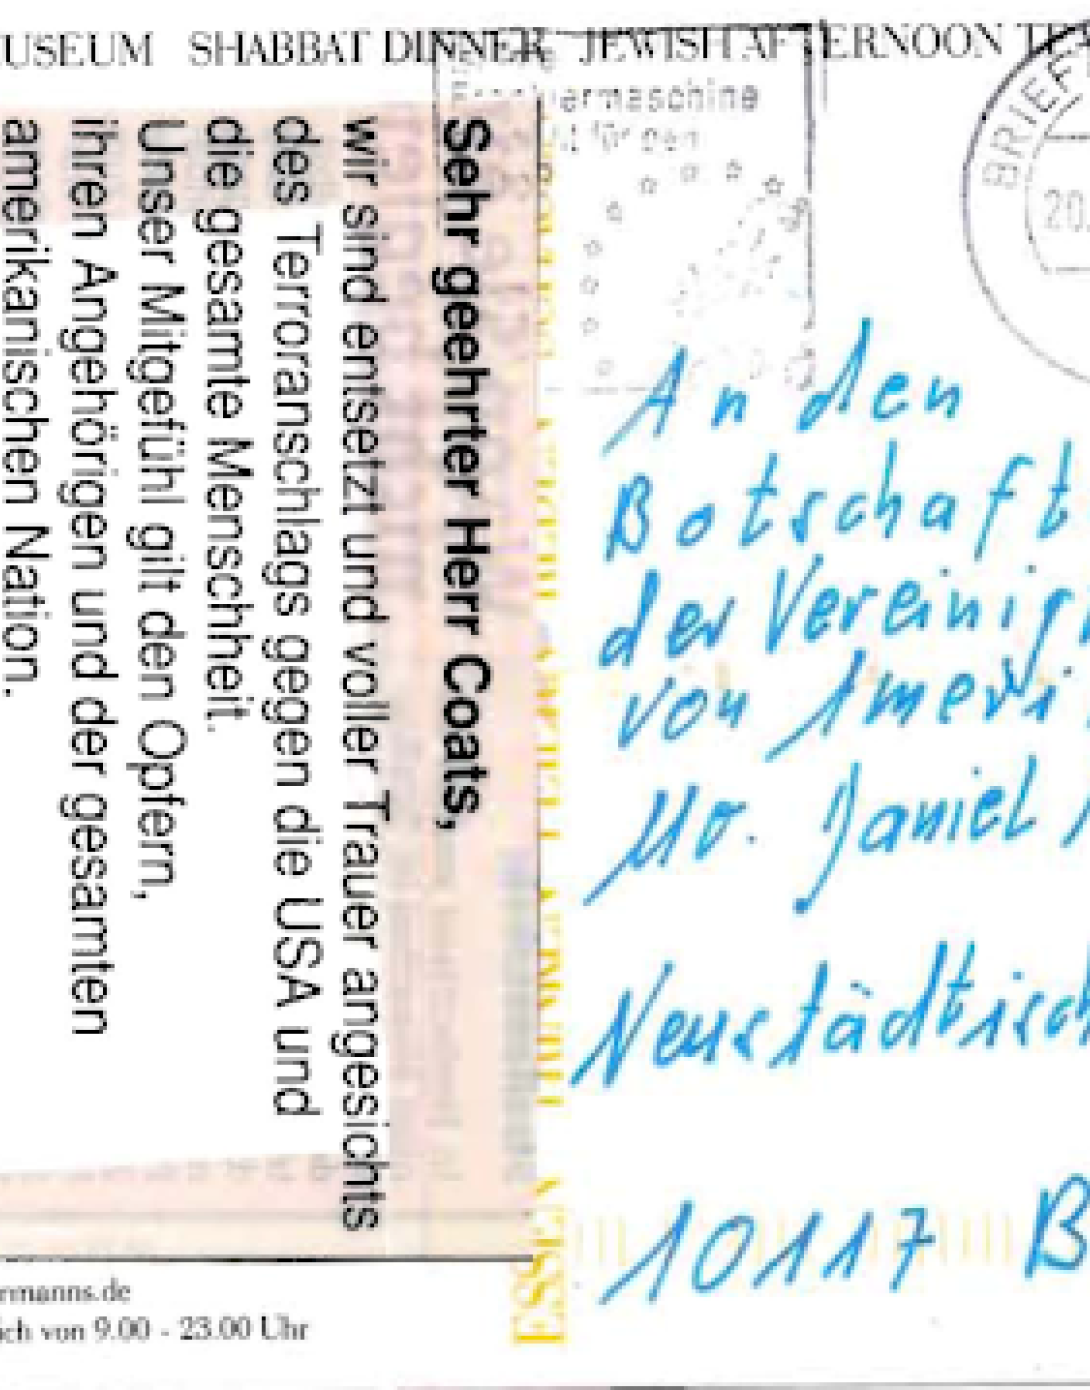 USEUM SHABBAT DINNER JEWISH AFTERNOON
Sehr geehrter Herr Coats,
wir sind entsetzt und voller Trauer angesichts
des Terroranschlags gegen die USA und
die gesamte Menschheit.
Unser Mitgefühl gilt den Opfern,
ihren Angehörigen und der gesamten
amerikanischen Nation.
rmanns.de
ich von 9.00 - 23.00 Uhr
ESSEN
ermaschine
für den
BRIEF
20
An den
Botschaft
der Vereinig
von Ameri
Mr. Daniel
Neustädtisch
10117 B